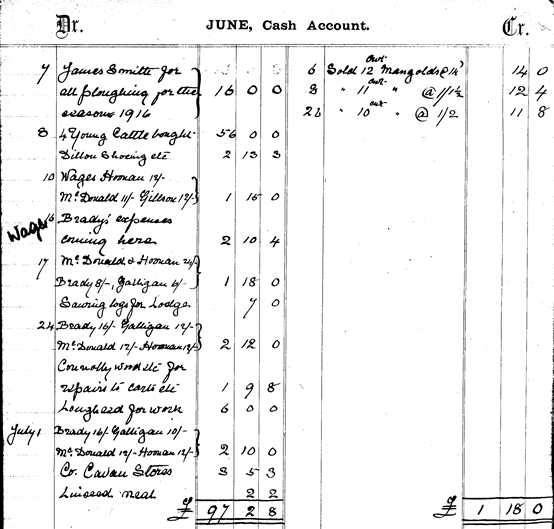 Dr. JUNE, Cash Account. Cr.
7 James Smith for
all ploughing for the
season 1916 16 0 0
8 4 Young Cattle bought 56 0 0
Dillon Shoeing etc 2 13 3
10 Wages Hoonan 12/-
McDonald 11/- Gillson 12/- 1 15 0
Wages
16 Brady's expenses
coming here 2 10 4
17 McDonald & Hoonan 24/-
Brady 8/-, Galligan 6/- 1 18 0
Sawing logs for Lodge 7 0
24 Brady 16/- Galligan 12/-
McDonald 12/- Hoonan 12/- 2 12 0
Connolly wood etc for
repairs to carts etc 1 9 8
Lougheed for work 6 0 0
July 1 Brady 16/- Galligan 10/-
McDonald 12/- Hoonan 12/- 2 10 0
Co. Cavan Stores 3 5 3
Linseed meal 2 2
£ 97 2 8
6 Sold 12 cwt Mangolds @ 1/2 14 0
8 " 11 cwt " @ 1/1½ 12 4
26 " 10 cwt " @ 1/2 11 8
£ 1 18 0